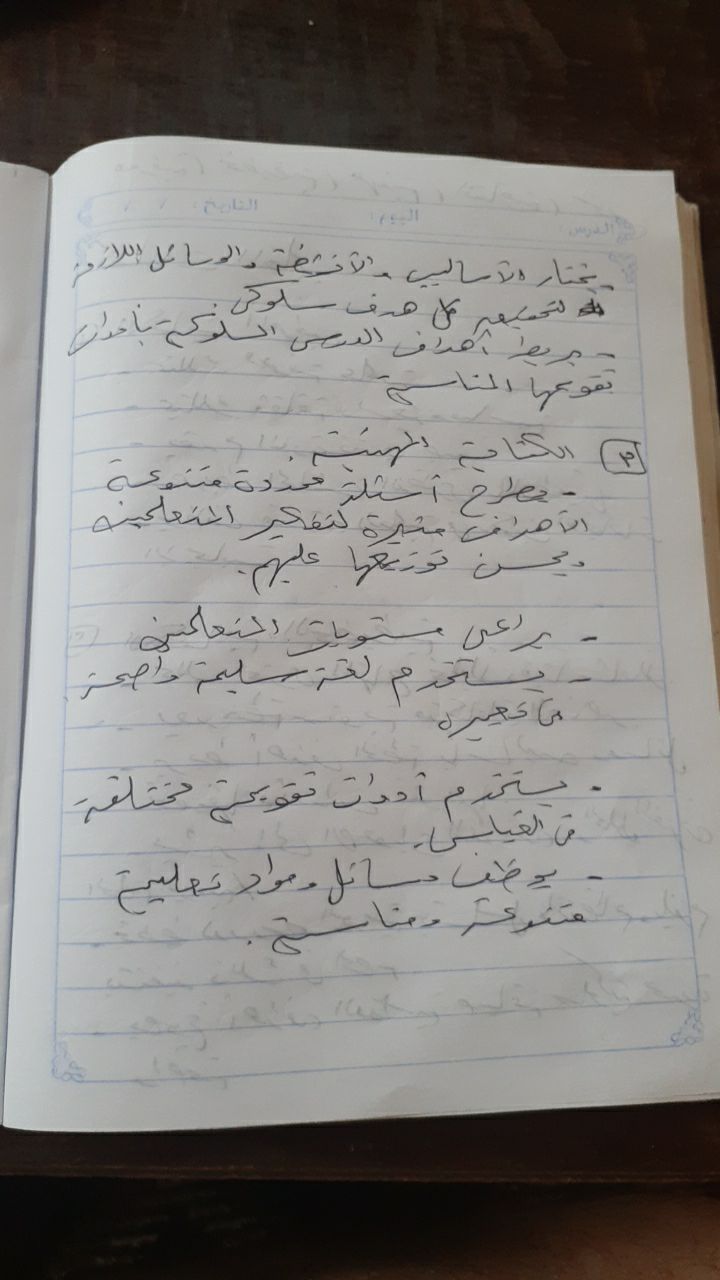 الدرس: اليوم: التاريخ: / /
- يختار الأساليب والأنشطة والوسائل اللازمة
لتحقيق كل هدف سلوكي
- يربط أهداف الدرس السلوكية بأدوات
تقويمها المناسبة
٣ الكفاية المهنية .
- يطرح أسئلة محددة متنوعة
الأهداف مثيرة لتفكير المتعلمين
ويحسن توزيعها عليهم .
- يراعي مستويات المتعلمين
- يستخدم لغة سليمة واضحة
في تعبيره
- يستخدم أدوات تقويمية مختلفة
في القياس .
- يوظف وسائل ومواد تعليمية
متنوعة ومناسبة .